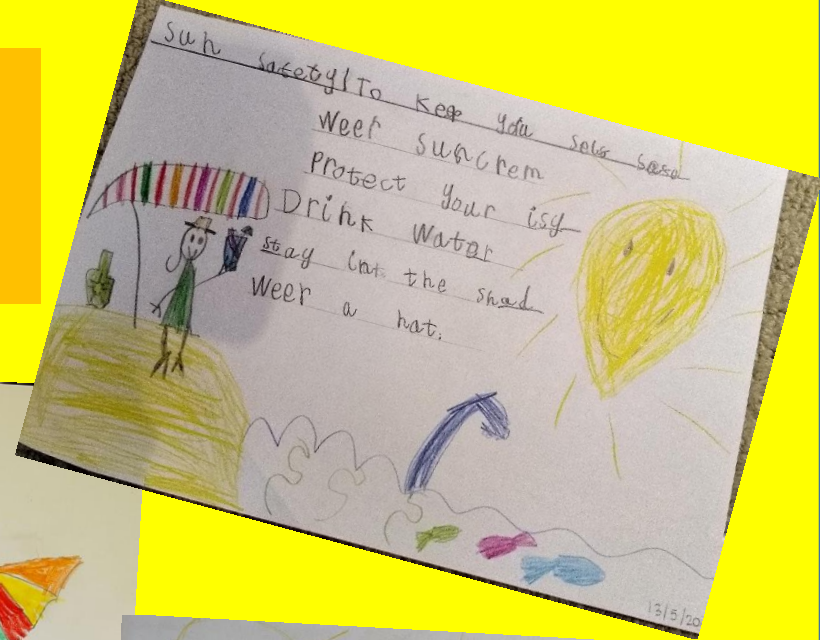 sun satety! To Keep you sels sase
Weer suncrem
Protect your isy
Drink Water
stay int the shad
Weer a hat.
13/5/20